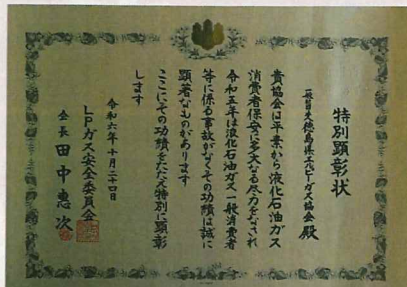 特別顕彰状
一般社団徳島県エルピーガス協会 殿
貴協会は平素から液化石油ガス
消費者保安に多大なる尽力をなされ
令和五年は液化石油ガス一般消費者
等に係る事故がなくその功績は誠に
顕著なものがあります
ここにその功績をたたえ特別に顕彰
します
令和六年十月二十四日
LPガス安全委員会
会長 田中惠次